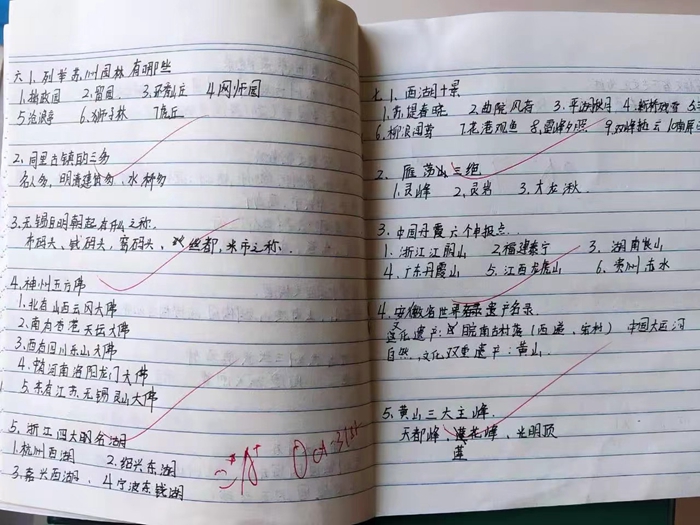 六 1. 列举苏州园林有哪些
1.拙政园 2.留园 3.环秀山庄 4.网师园
5.沧浪亭 6.狮子林 7虎丘
2. 同里古镇的三多
名人多,明清建筑多、水桥多
3.无锡自明朝起有什么之称.
布码头、钱码头、窑码头、丝都、米市之称.
4.神州五方佛
1.北有山西云冈大佛
2.南有香港天坛大佛
3.西有四川乐山大佛
4.中有河南洛阳龙门大佛
5.东有江苏无锡灵山大佛
5. 浙江四大明名湖
1.杭州西湖 2.绍兴东湖
3.嘉兴西湖. 4.宁波东钱湖
A+ Oct 31st
七 1. 西湖十景
1.苏堤春晓 2.曲院风荷 3.平湖秋月 4.断桥残雪
6.柳浪闻莺 7.花港观鱼 8.雷峰夕照 9.双峰插云 10南屏
2. 雁荡山三绝
1.灵峰 2.灵岩 3.大龙湫.
3.中国丹霞六个申报点.
1.浙江江郎山 2.福建泰宁 3.湖南崀山
4.广东丹霞山 5.江西龙虎山 6.贵州赤水
4.安徽省世界遗产名录.
文化遗产:皖南古村落(西递、宏村) 中国大运河
自然,文化双重遗产:黄山.
5.黄山三大主峰.
天都峰、莲花峰、光明顶
莲